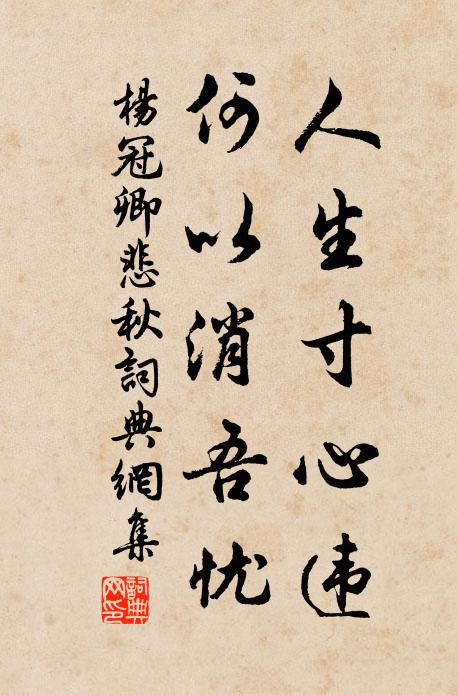 人生寸心违
何以消吾忧
楊冠卿悲秋詞典網集
詞典網印